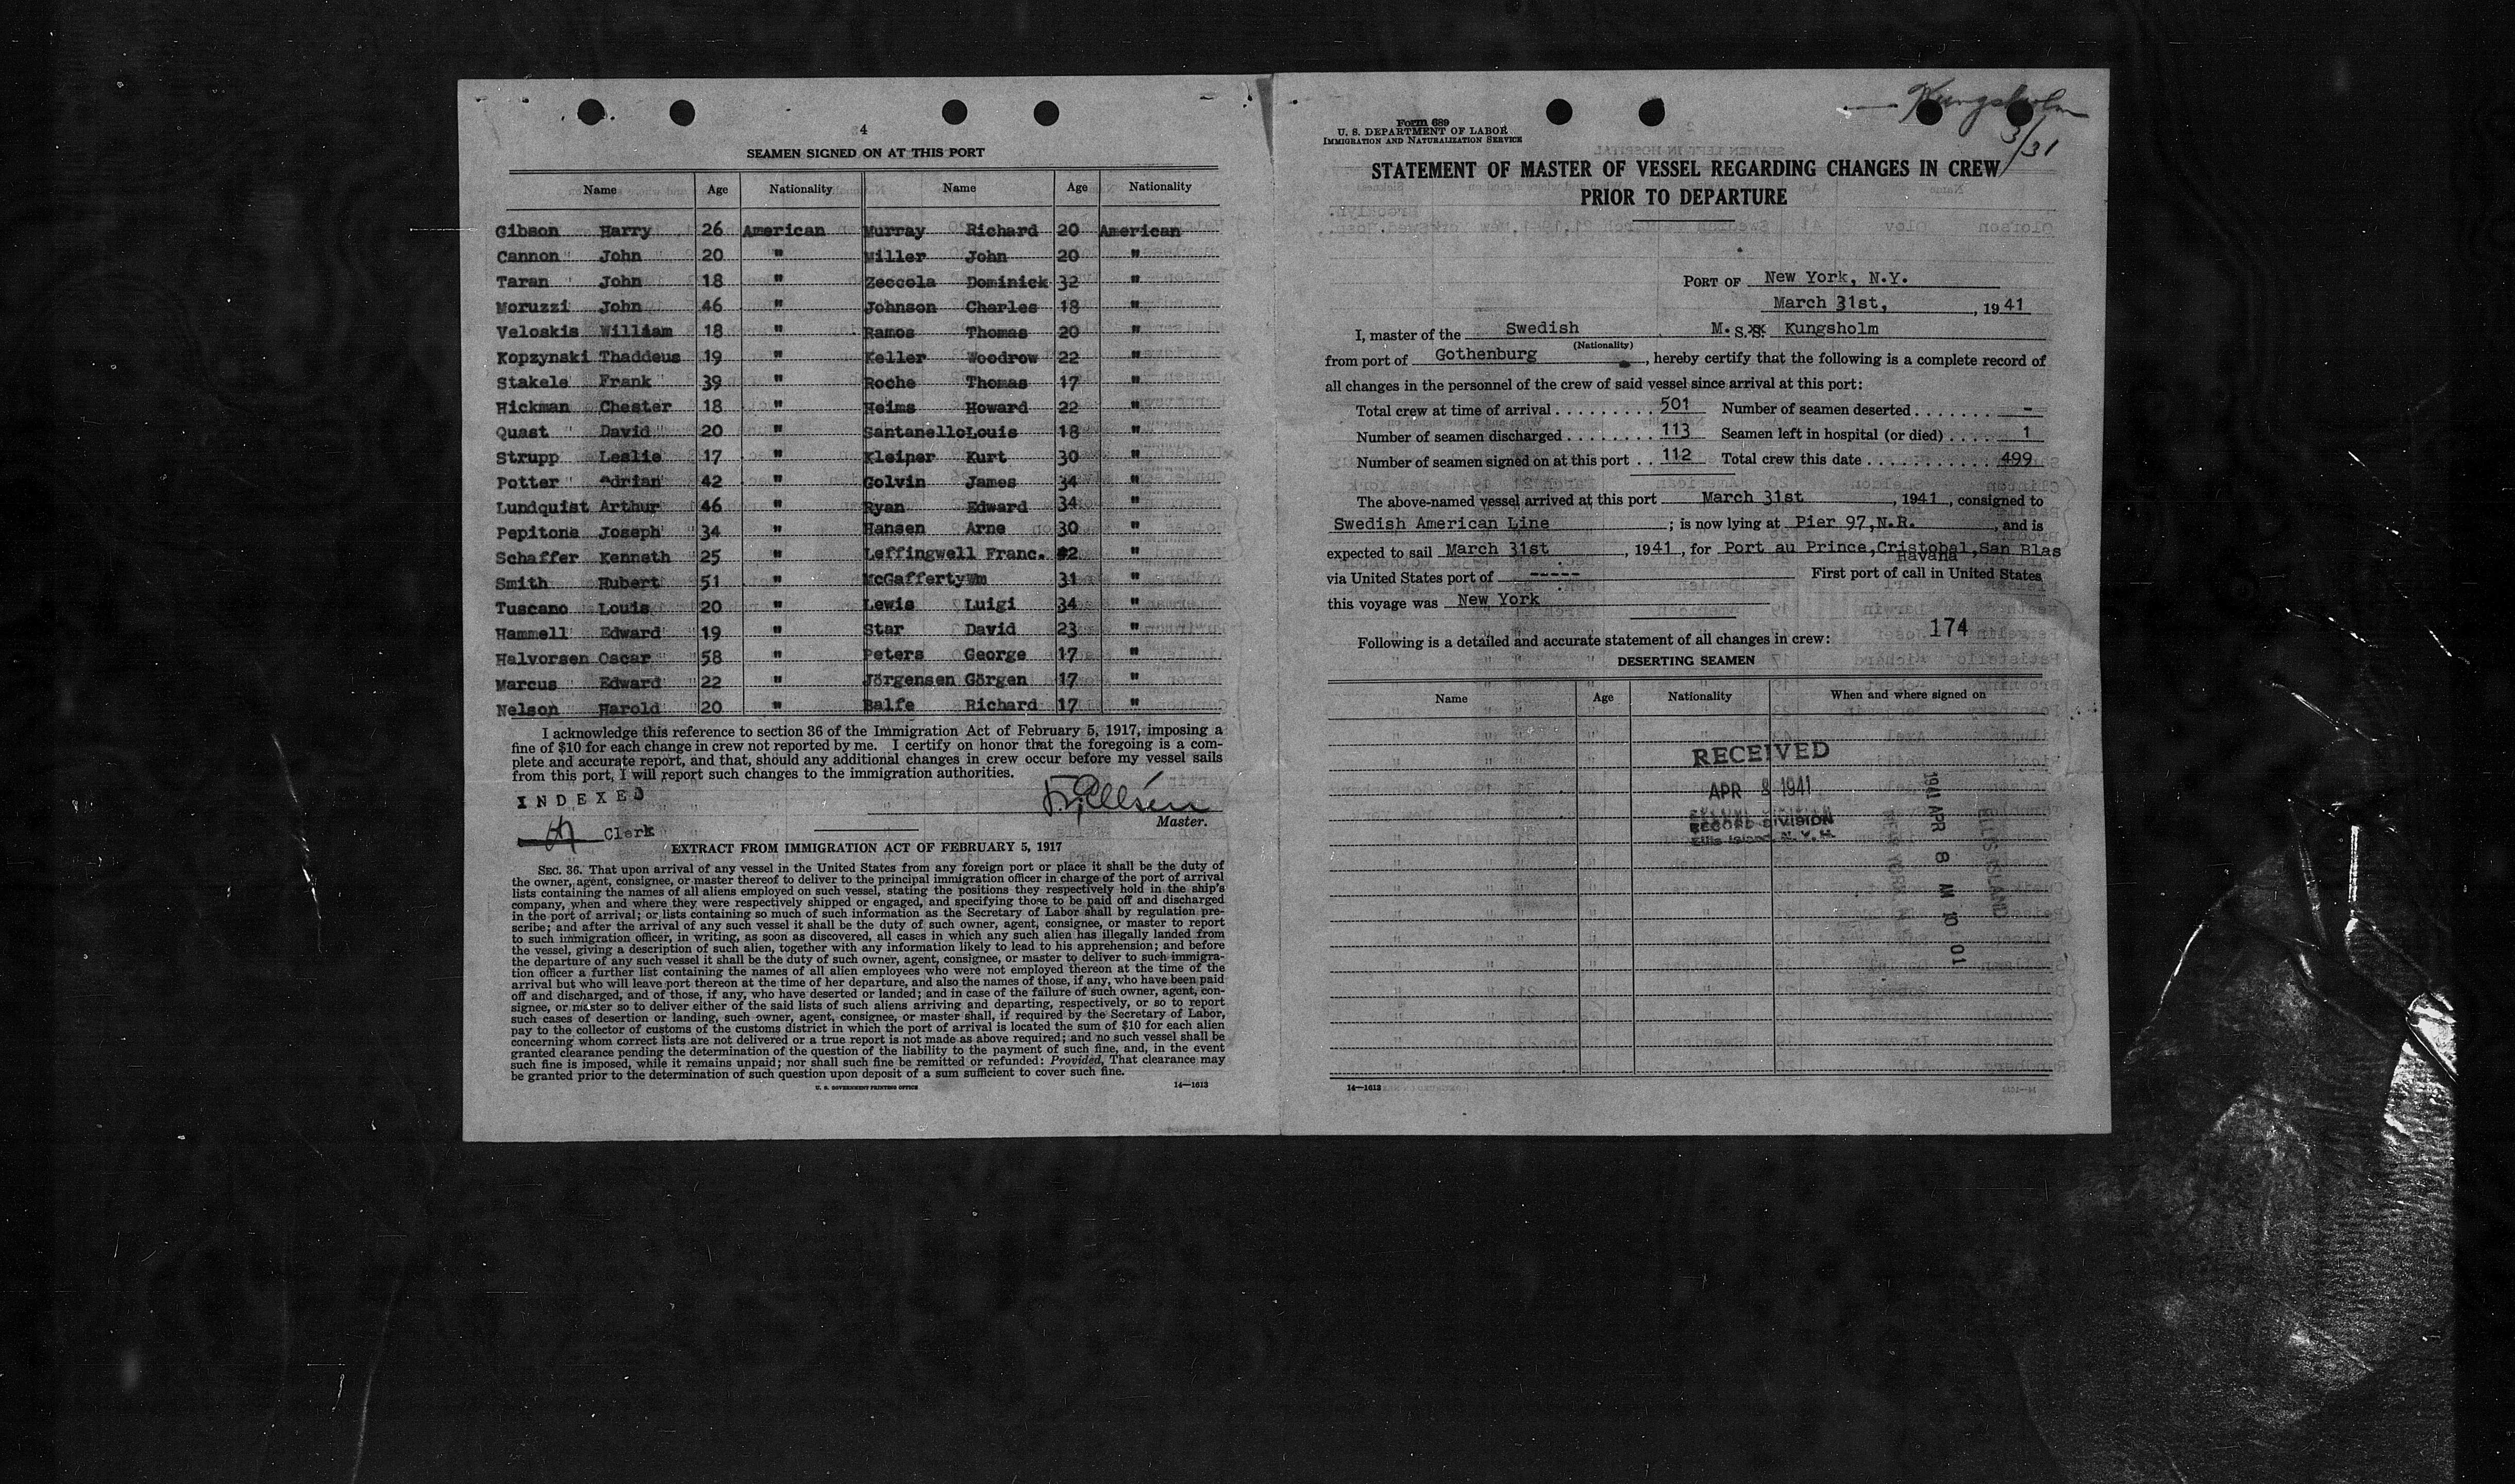 4
SEAMEN SIGNED ON AT THIS PORT
Name Age Nationality Name Age Nationality
Gibson Harry 26 American Murray Richard 20 American
Cannon John 20 " Miller John 20 "
Taran John 18 " Zeccola Dominick 32 "
Moruzzi John 46 " Johnson Charles 18 "
Veloskis William 18 " Ramos Thomas 20 "
Kopzynski Thaddeus 19 " Keller Woodrow 22 "
Stakele Frank 39 " Roche Thomas 17 "
Hickman Chester 18 " Heims Howard 22 "
Quast David 20 " Santanello Louis 18 "
Strupp Leslie 17 " Kleiner Kurt 30 "
Potter Adrian 42 " Golvin James 34 "
Lundquist Arthur 46 " Ryan Edward 34 "
Pepitone Joseph 34 " Hansen Arne 30 "
Schaffer Kenneth 25 " Leffingwell Franc. 42 "
Smith Hubert 51 " McGafferty Wm 31 "
Tuscano Louis 20 " Lewis Luigi 34 "
Hammell Edward 19 " Star David 23 "
Halvorsen Oscar 58 " Peters George 17 "
Marcus Edward 22 " Jörgensen Görgen 17 "
Nelson Harold 20 " Balfe Richard 17 "
I acknowledge this reference to section 36 of the Immigration Act of February 5, 1917, imposing a
fine of $10 for each change in crew not reported by me. I certify on honor that the foregoing is a com-
plete and accurate report, and that, should any additional changes in crew occur before my vessel sails
from this port, I will report such changes to the immigration authorities.
INDEXED
Master.
Clerk
EXTRACT FROM IMMIGRATION ACT OF FEBRUARY 5, 1917
SEC. 36. That upon arrival of any vessel in the United States from any foreign port or place it shall be the duty of
the owner, agent, consignee, or master thereof to deliver to the principal immigration officer in charge of the port of arrival
lists containing the names of all aliens employed on such vessel, stating the positions they respectively hold in the ship's
company, when and where they were respectively shipped or engaged, and specifying those to be paid off and discharged
in the port of arrival; or lists containing so much of such information as the Secretary of Labor shall by regulation pre-
scribe; and after the arrival of any such vessel it shall be the duty of such owner, agent, consignee, or master to report
to such immigration officer, in writing, as soon as discovered, all cases in which any such alien has illegally landed from
the vessel, giving a description of such alien, together with any information likely to lead to his apprehension; and before
the departure of any such vessel it shall be the duty of such owner, agent, consignee, or master to deliver to such immigra-
tion officer a further list containing the names of all alien employees who were not employed thereon at the time of the
arrival but who will leave port thereon at the time of her departure, and also the names of those, if any, who have been paid
off and discharged, and of those, if any, who have deserted or landed; and in case of the failure of such owner, agent, con-
signee, or master so to deliver either of the said lists of such aliens arriving and departing, respectively, or so to report
such cases of desertion or landing, such owner, agent, consignee, or master shall, if required by the Secretary of Labor,
pay to the collector of customs of the customs district in which the port of arrival is located the sum of $10 for each alien
concerning whom correct lists are not delivered or a true report is not made as above required; and no such vessel shall be
granted clearance pending the determination of the question of the liability to the payment of such fine, and, in the event
such fine is imposed, while it remains unpaid; nor shall such fine be remitted or refunded: Provided, That clearance may
be granted prior to the determination of such question upon deposit of a sum sufficient to cover such fine.
U. S. GOVERNMENT PRINTING OFFICE 14—1613
Kungsholm
3/31
Form 689
U. S. DEPARTMENT OF LABOR
IMMIGRATION AND NATURALIZATION SERVICE
STATEMENT OF MASTER OF VESSEL REGARDING CHANGES IN CREW
PRIOR TO DEPARTURE
PORT OF New York, N.Y.
March 31st, , 1941
I, master of the Swedish M. S. S. Kungsholm
(Nationality)
from port of Gothenburg , hereby certify that the following is a complete record of
all changes in the personnel of the crew of said vessel since arrival at this port:
Total crew at time of arrival . . . . . . . . . 501 Number of seamen deserted . . . . . . . -
Number of seamen discharged . . . . . . . . 113 Seamen left in hospital (or died) . . . . 1
Number of seamen signed on at this port . . 112 Total crew this date . . . . . . . . . . . . 499
The above-named vessel arrived at this port March 31st , 1941 , consigned to
Swedish American Line ; is now lying at Pier 97,N.R. , and is
expected to sail March 31st , 1941 , for Port au Prince,Cristobal,San Blas
Havana
via United States port of ----- First port of call in United States
this voyage was New York
174
Following is a detailed and accurate statement of all changes in crew:
DESERTING SEAMEN
Name Age Nationality When and where signed on
RECEIVED
APR 8 1941
RECORD DIVISION
Ellis Island, N. Y. H.
1941 APR 8 AM 10 01
ELLIS ISLAND
14—1613